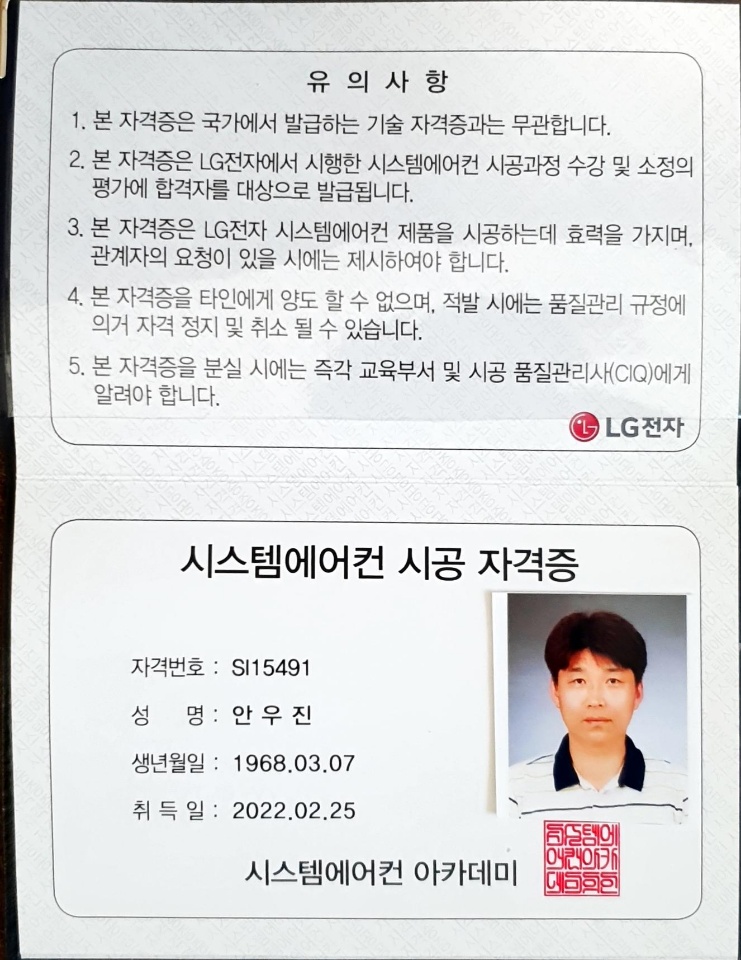 유 의 사 항
1. 본 자격증은 국가에서 발급하는 기술 자격증과는 무관합니다.
2. 본 자격증은 LG전자에서 시행한 시스템에어컨 시공과정 수강 및 소정의
평가에 합격자를 대상으로 발급됩니다.
3. 본 자격증은 LG전자 시스템에어컨 제품을 시공하는데 효력을 가지며,
관계자의 요청이 있을 시에는 제시하여야 합니다.
4. 본 자격증을 타인에게 양도 할 수 없으며, 적발 시에는 품질관리 규정에
의거 자격 정지 및 취소 될 수 있습니다.
5. 본 자격증을 분실 시에는 즉각 교육부서 및 시공 품질관리사(CIQ)에게
알려야 합니다.
LG전자
시스템에어컨 시공 자격증
자격번호 : SI15491
성 명 : 안 우 진
생년월일 : 1968.03.07
취 득 일 : 2022.02.25
시스템에어컨 아카데미